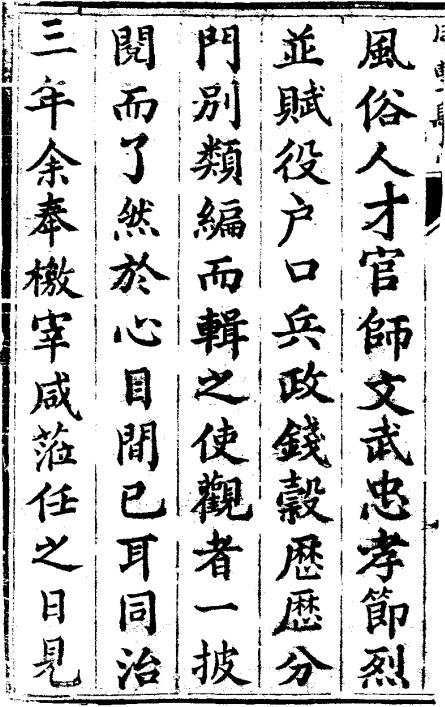 風俗人才官師文武忠孝節烈
並賦役户口兵政錢穀歴歴分
門别類編而輯之使觀者一披
閱而了然於心目間已耳同治
三年余奉檄宰咸蒞任之日見